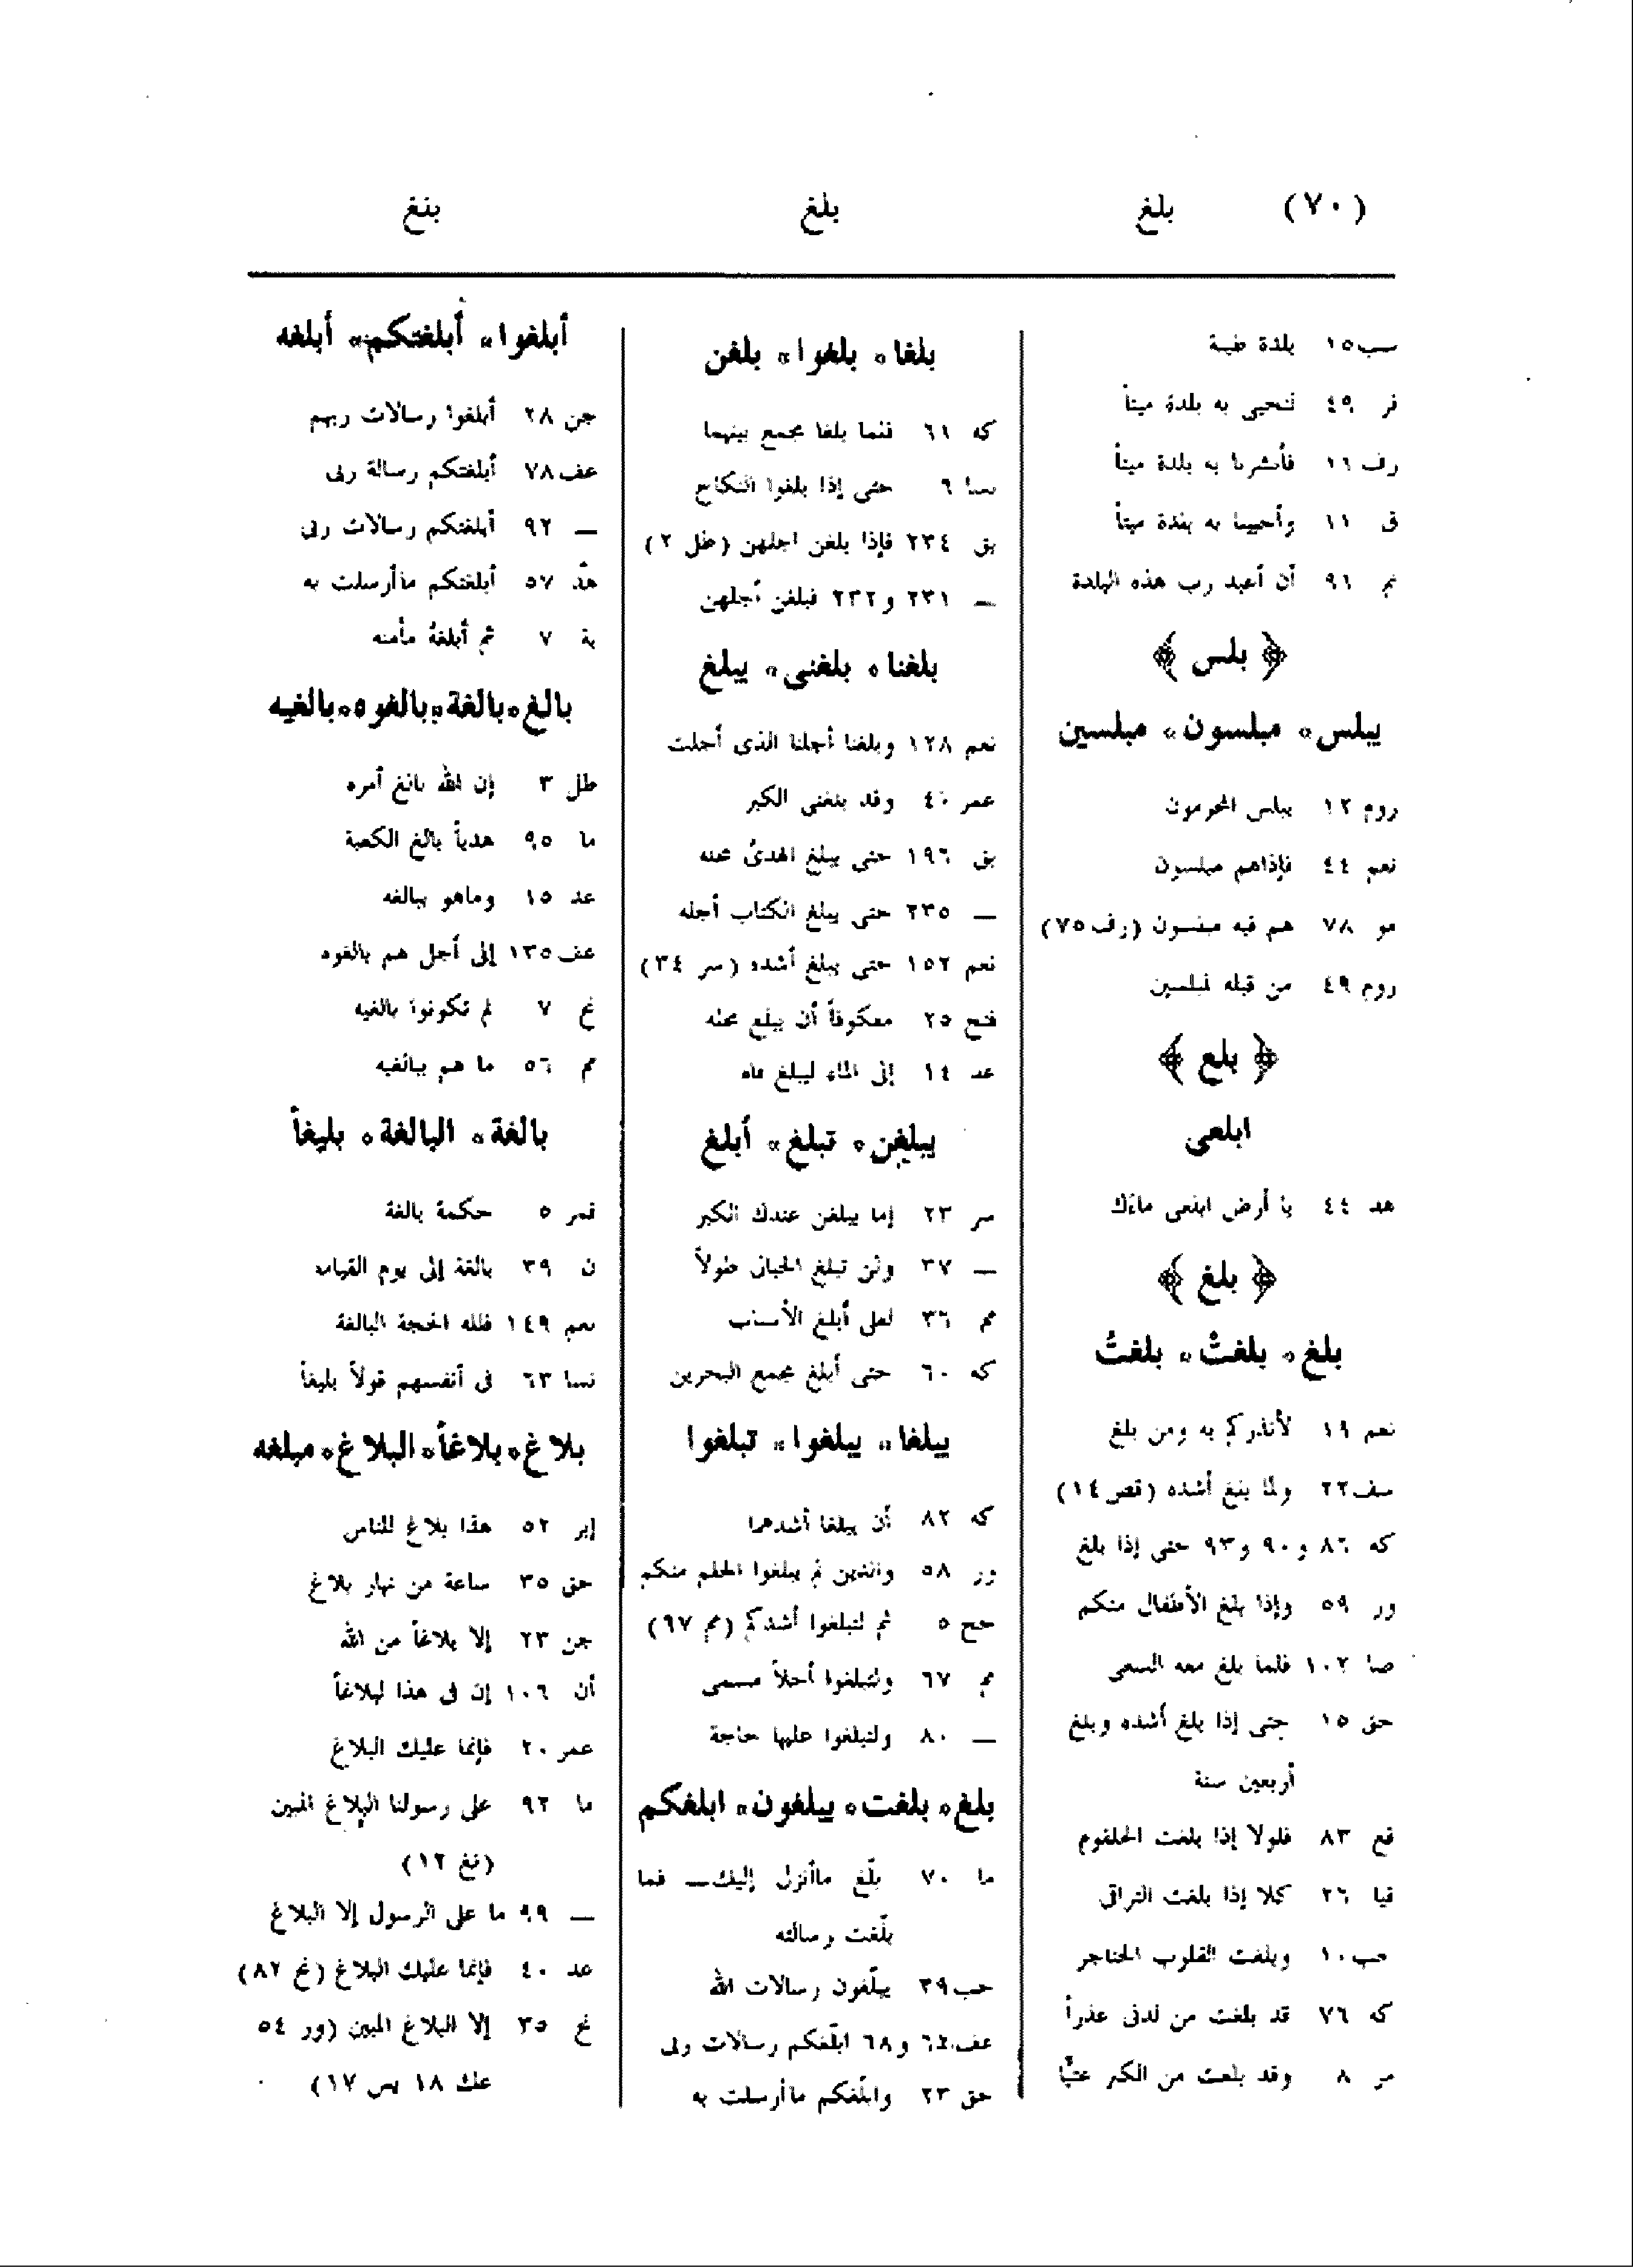 (٧٠) بلغ بلغ بلغ
سب ١٥ بلدة طيبة
فر ٤٩ لنحيى به بلدة ميتاً
رف ١١ فأنشرنا به بلدة ميتاً
ق ١١ وأحيينا به بلدة ميتاً
نم ٩١ أن أعبد رب هذه البلدة
﴿ بلس ﴾
يبلس، مبلسون، مبلسين
روم ١٢ يبلس المجرمون
نعم ٤٤ فإذاهم مبلسون
مو ٧٨ هم فيه مبلسون (رف ٧٥)
روم ٤٩ من قبله لمبلسين
﴿ بلع ﴾
ابلعى
هد ٤٤ يا أرض ابلعى ماءك
﴿ بلغ ﴾
بلغ، بلغتْ، بلغتُ
نعم ١٩ لأنذركم به ومن بلغ
سف ٢٢ ولما بلغ أشده (قص ١٤)
كه ٨٦ و ٩٠ و ٩٣ حتى إذا بلغ
ور ٥٩ وإذا بلغ الأطفال منكم
صا ١٠٢ فلما بلغ معه السعى
حق ١٥ حتى إذا بلغ أشده وبلغ
أربعين سنة
قع ٨٣ فلولا إذا بلغت الحلقوم
قيا ٢٦ كلا إذا بلغت التراقى
حب ١٠ وبلغت القلوب الحناجر
كه ٧٦ قد بلغت من لدنى عذراً
مر ٨ وقد بلغت من الكبر عتيًّا
بلغا، بلغوا، بلغن
كه ٦١ فلما بلغا مجمع بينهما
نسا ٦ حتى إذا بلغوا النكاح
بق ٢٣٤ فإذا بلغن اجلهن (طل ٢)
— ٢٣١ و ٢٣٢ فبلغن أجلهن
بلغنا، بلغنى، يبلغ
نعم ١٢٨ وبلغنا أجلنا الذى أجلت
عمر ٤٠ وقد بلغنى الكبر
بق ١٩٦ حتى يبلغ الهدىُ محله
— ٢٣٥ حتى يبلغ الكتاب أجله
نعم ١٥٢ حتى يبلغ أشده (سر ٣٤)
فتح ٢٥ معكوفاً أن يبلغ محله
عد ١٤ إلى الماء ليبلغ فاه
يبلغن، تبلغ، أبلغ
سر ٢٣ إما يبلغن عندك الكبر
— ٣٧ ولن تبلغ الجبال طولاً
مم ٣٦ لعلى أبلغ الأسباب
كه ٦٠ حتى أبلغ مجمع البحرين
يبلغا، يبلغوا، تبلغوا
كه ٨٢ أن يبلغا أشدهما
ور ٥٨ والذين لم يبلغوا الحلم منكم
حج ٥ ثم لتبلغوا أشدكم (مم ٩٧)
مم ٦٧ ولتبلغوا أجلاً مسمى
— ٨٠ ولتبلغوا عليها حاجة
بلغ، بلغت، يبلغون، ابلغكم
ما ٧٠ بلّغ ماأنزل إليك — فما
بلّغت رسالته
حب ٣٩ يبلّغون رسالات الله
عف ٦٤ و ٦٨ ابلّغكم رسالات ربى
حق ٢٣ وابلّغكم ماأرسلت به
أبلغوا، أبلغتكم، أبلغه
جن ٢٨ أبلغوا رسالات ربهم
عف ٧٨ أبلغتكم رسالة ربى
— ٩٢ أبلغتكم رسالات ربى
هد ٥٧ أبلغتكم ماأرسلت به
بة ٧ ثم أبلغهُ مأمنه
بالغ، بالغة، بالغوه، بالغيه
طل ٣ إن الله بالغ أمره
ما ٩٥ هدياً بالغ الكعبة
عد ١٥ وماهو ببالغه
عف ١٣٥ إلى أجل هم بالغوه
نح ٧ لم تكونوا بالغيه
مم ٥٦ ما هم ببالغيه
بالغة، البالغة، بليغاً
قمر ٥ حكمة بالغة
ن ٣٩ بالغة إلى يوم القيامة
نعم ١٤٩ فلله الحجة البالغة
نسا ٦٣ فى أنفسهم قولاً بليغاً
بلاغ، بلاغاً، البلاغ، مبلغه
إبر ٥٢ هذا بلاغ للناس
حق ٣٥ ساعة من نهار بلاغ
جن ٢٣ إلا بلاغاً من الله
أن ١٠٦ إن فى هذا لبلاغاً
عمر ٢٠ فإنما عليك البلاغ
ما ٩٢ على رسولنا البلاغ المبين
(تغ ١٢)
— ٩٩ ما على الرسول إلا البلاغ
عد ٤٠ فإنما عليك البلاغ (نح ٨٢)
نح ٣٥ إلا البلاغ المبين (ور ٥٤
عك ١٨ يس ١٧)